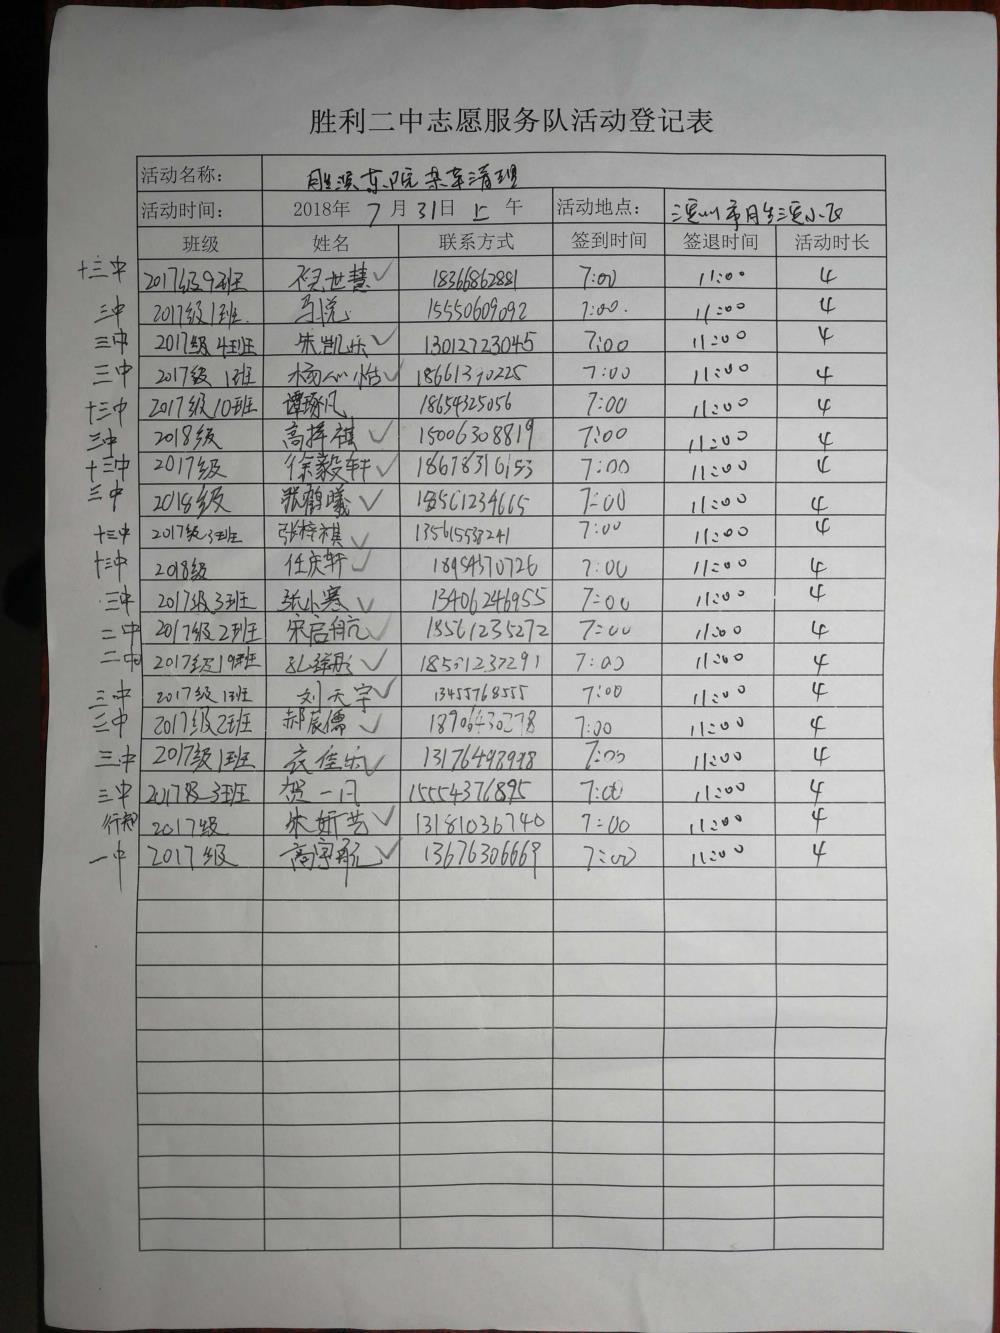 胜利二中志愿服务队活动登记表
活动名称： 胜滨东院杂草清理
活动时间： 2018年 7 月 31日 上 午 活动地点： 滨州市胜滨小区
班级 姓名 联系方式 签到时间 签退时间 活动时长
十三中 2017级9班 世慧✓ 18366862881 7:00 11:00 4
三中 2017级1班. 马悦 15550609092 7:00. 11:00 4
三中 2017级4班 朱凯乐✓ 13012723045 7:00 11:00 4
三中 2017级 1班 杨心怡✓ 18661390225 7:00 11:00 4
十三中 2017级10班 谭琢凡 18654325056 7:00 11:00 4
三中 2018级 高梓祺✓ 15006308819 7:00 11:00 4
十三中 2017级 徐毅轩✓ 18678316153 7:00 11:00 4
三中 2018级 张鹤曦✓ 18561234665 7:00 11:00 4
十三中 2017级3班 张梓祺✓ 13561558241 7:00 11:00 4
十三中 2018级 任庆轩✓ 18954370726 7:00 11:00 4
三中 2017级3班 张小寒✓ 13406246955 7:00 11:00 4
二中 2017级2班 宋启航✓ 18561235272 7:00 11:00 4
二中 2017级19班 ✓ 18561237291 7:00 11:00 4
三中 2017级1班 刘天宇✓ 13455768555 7:00 11:00 4
三中 2017级2班 郝宸儒✓ 18906430278 7:00 11:00 4
三中 2017级1班 衣佳乐✓ 13176498998 7:00 11:00 4
三中 2017级3班 贺一凡 15554376895 7:00 11:00 4
行知 2017级 朱妍艺✓ 13181036740 7:00 11:00 4
一中 2017级 高宇航✓ 13676306669 7:00 11:00 4